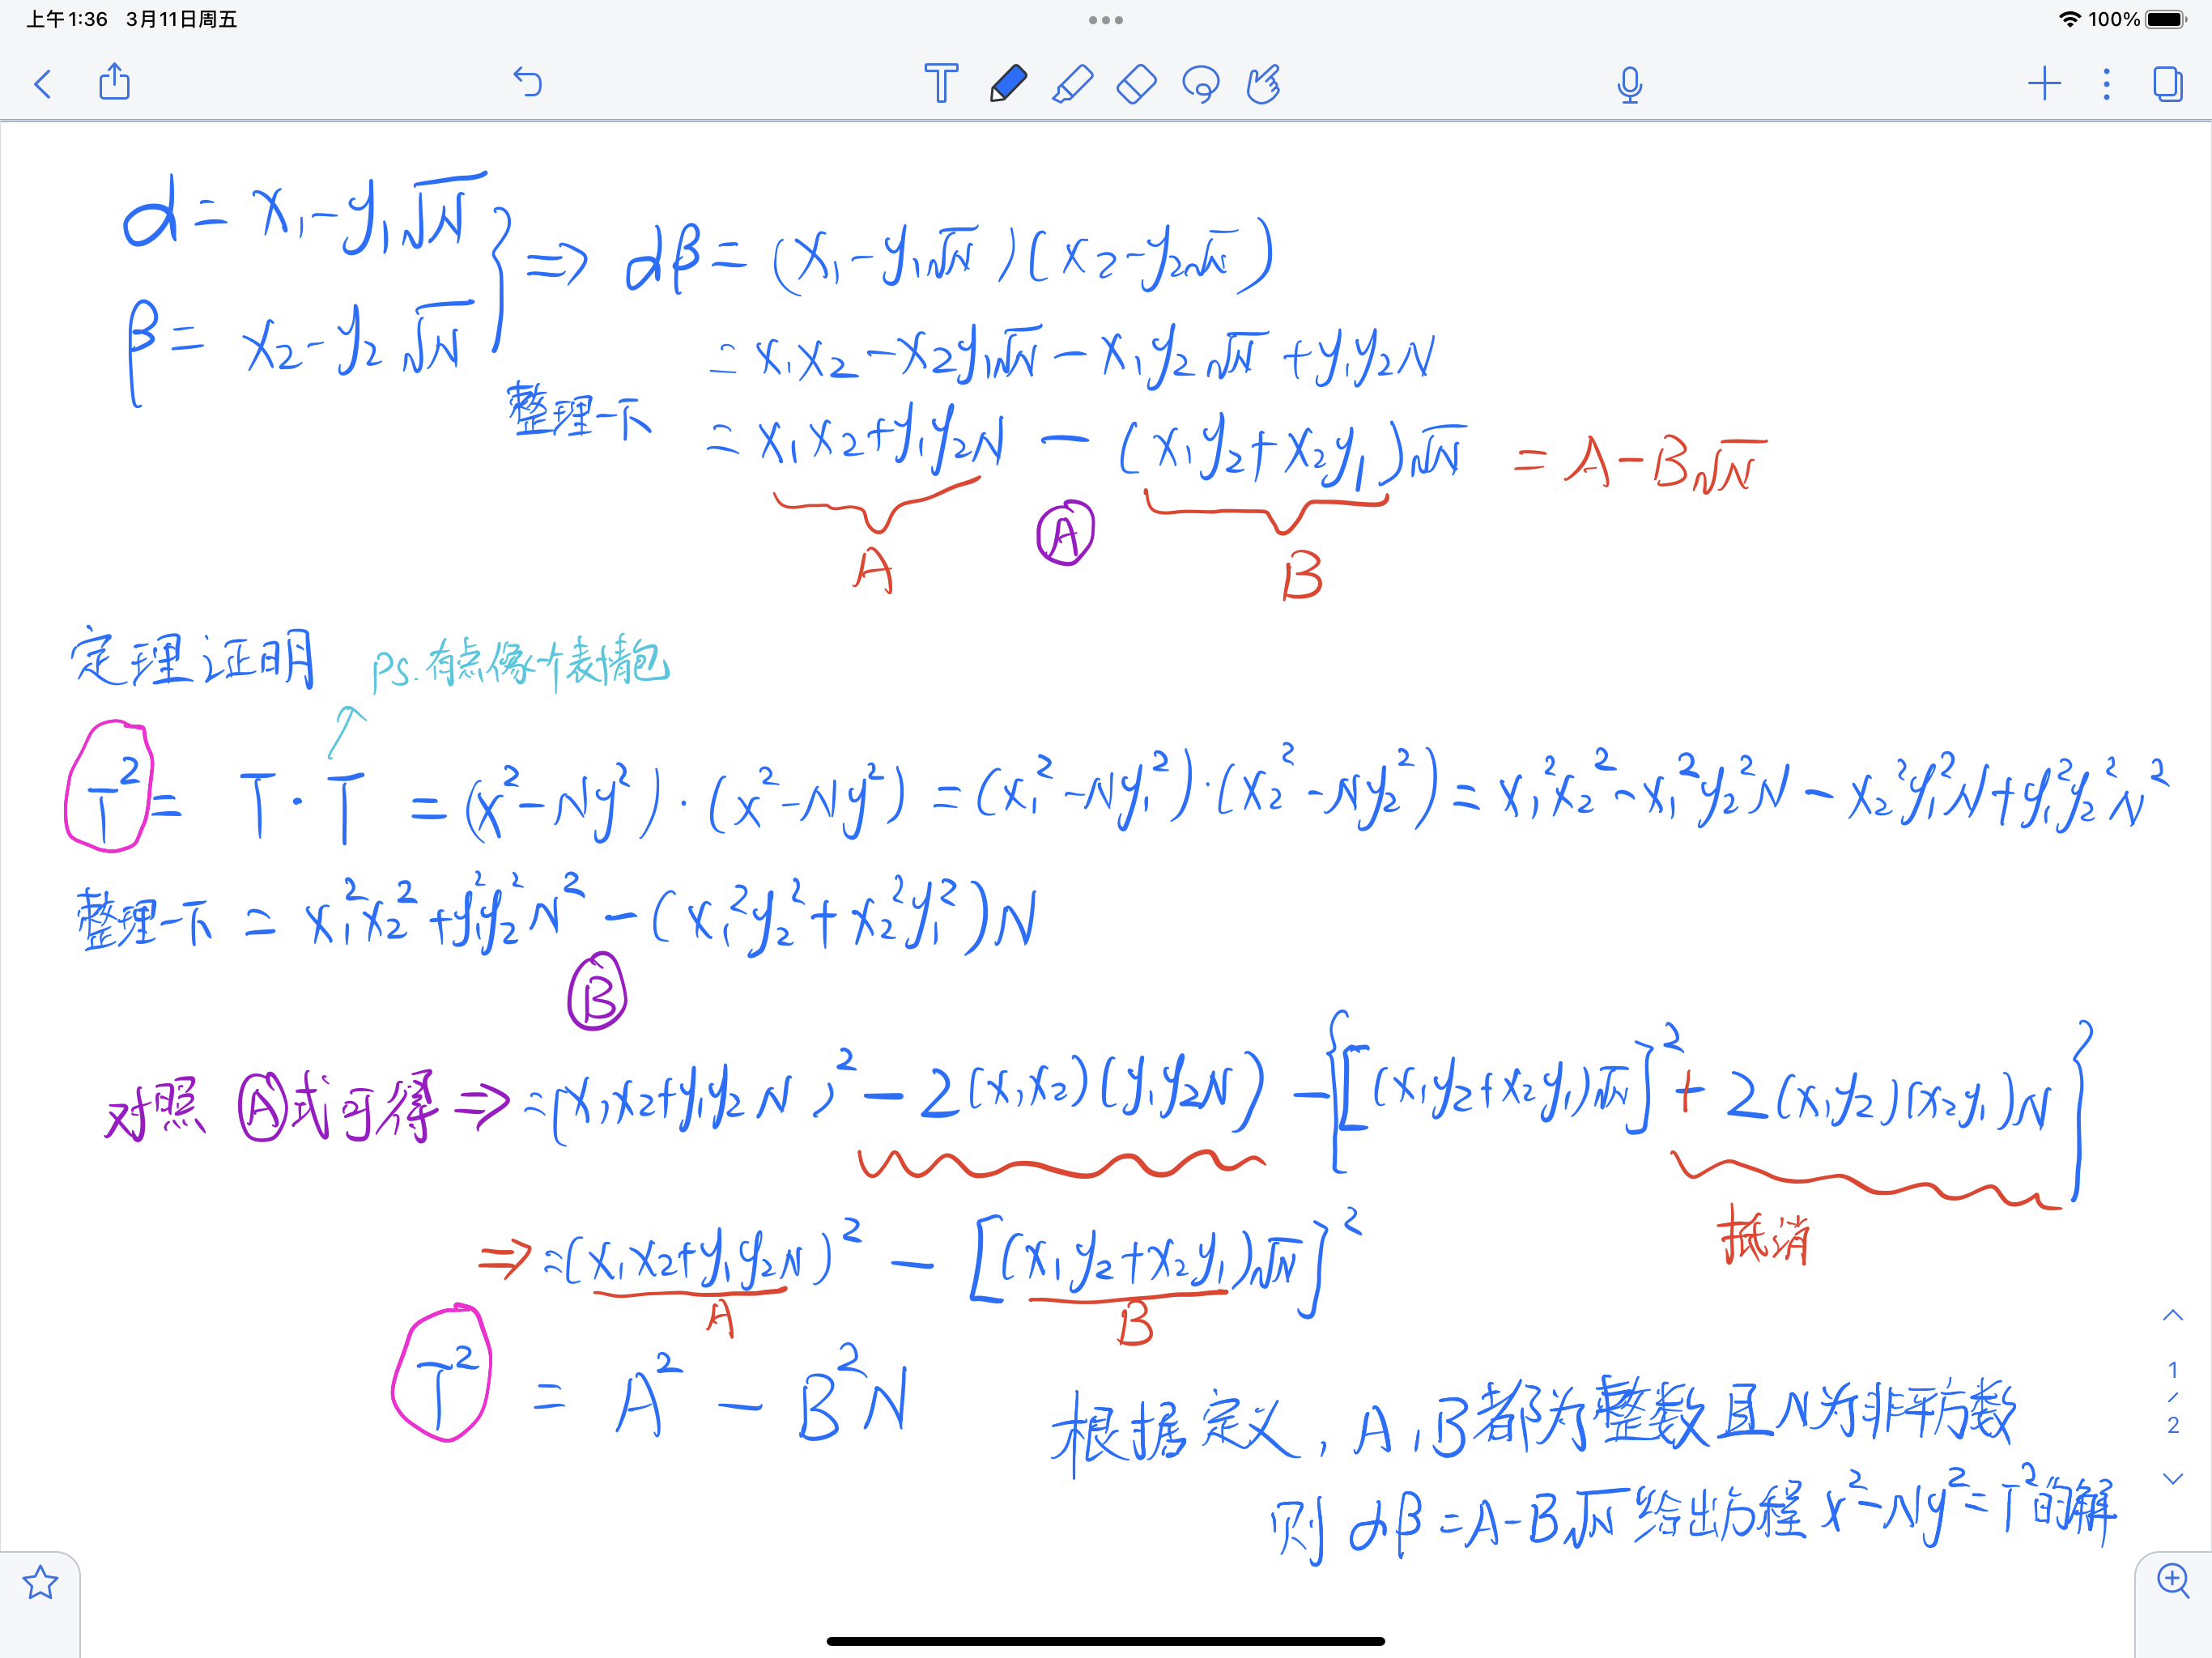 上午1:36 3月11日周五
100%
T
α = x₁-y₁√N
β = x₂-y₂√N
⇒ αβ = (x₁-y₁√N)(x₂-y₂√N)
= x₁x₂-x₂y₁√N-x₁y₂√N+y₁y₂N
整理一下 = x₁x₂+y₁y₂N - (x₁y₂+x₂y₁)√N = A-B√N
A Ⓐ B
定理证明 ps.有点像个表情包
T² = T·T = (x²-Ny²)·(x²-Ny²) = (x₁²-Ny₁²)·(x₂²-Ny₂²) = x₁²x₂²-x₁²y₂²N-x₂²y₁²N+y₁²y₂²N²
整理一下 = x₁²x₂²+y₁²y₂²N²-(x₁²y₂²+x₂²y₁²)N
Ⓑ
对照 Ⓐ式可得 ⇒ =(x₁x₂+y₁y₂N)²-2(x₁x₂)(y₁y₂N)-{[(x₁y₂+x₂y₁)√N]²+2(x₁y₂)(x₂y₁)N}
抵消
⇒ =(x₁x₂+y₁y₂N)²-[(x₁y₂+x₂y₁)√N]²
A B
T² = A²-B²N
根据定义,A,B都为整数且N为非平方数
则 αβ=A-B√N 给出方程 x²-Ny²=T²的解
1
/
2